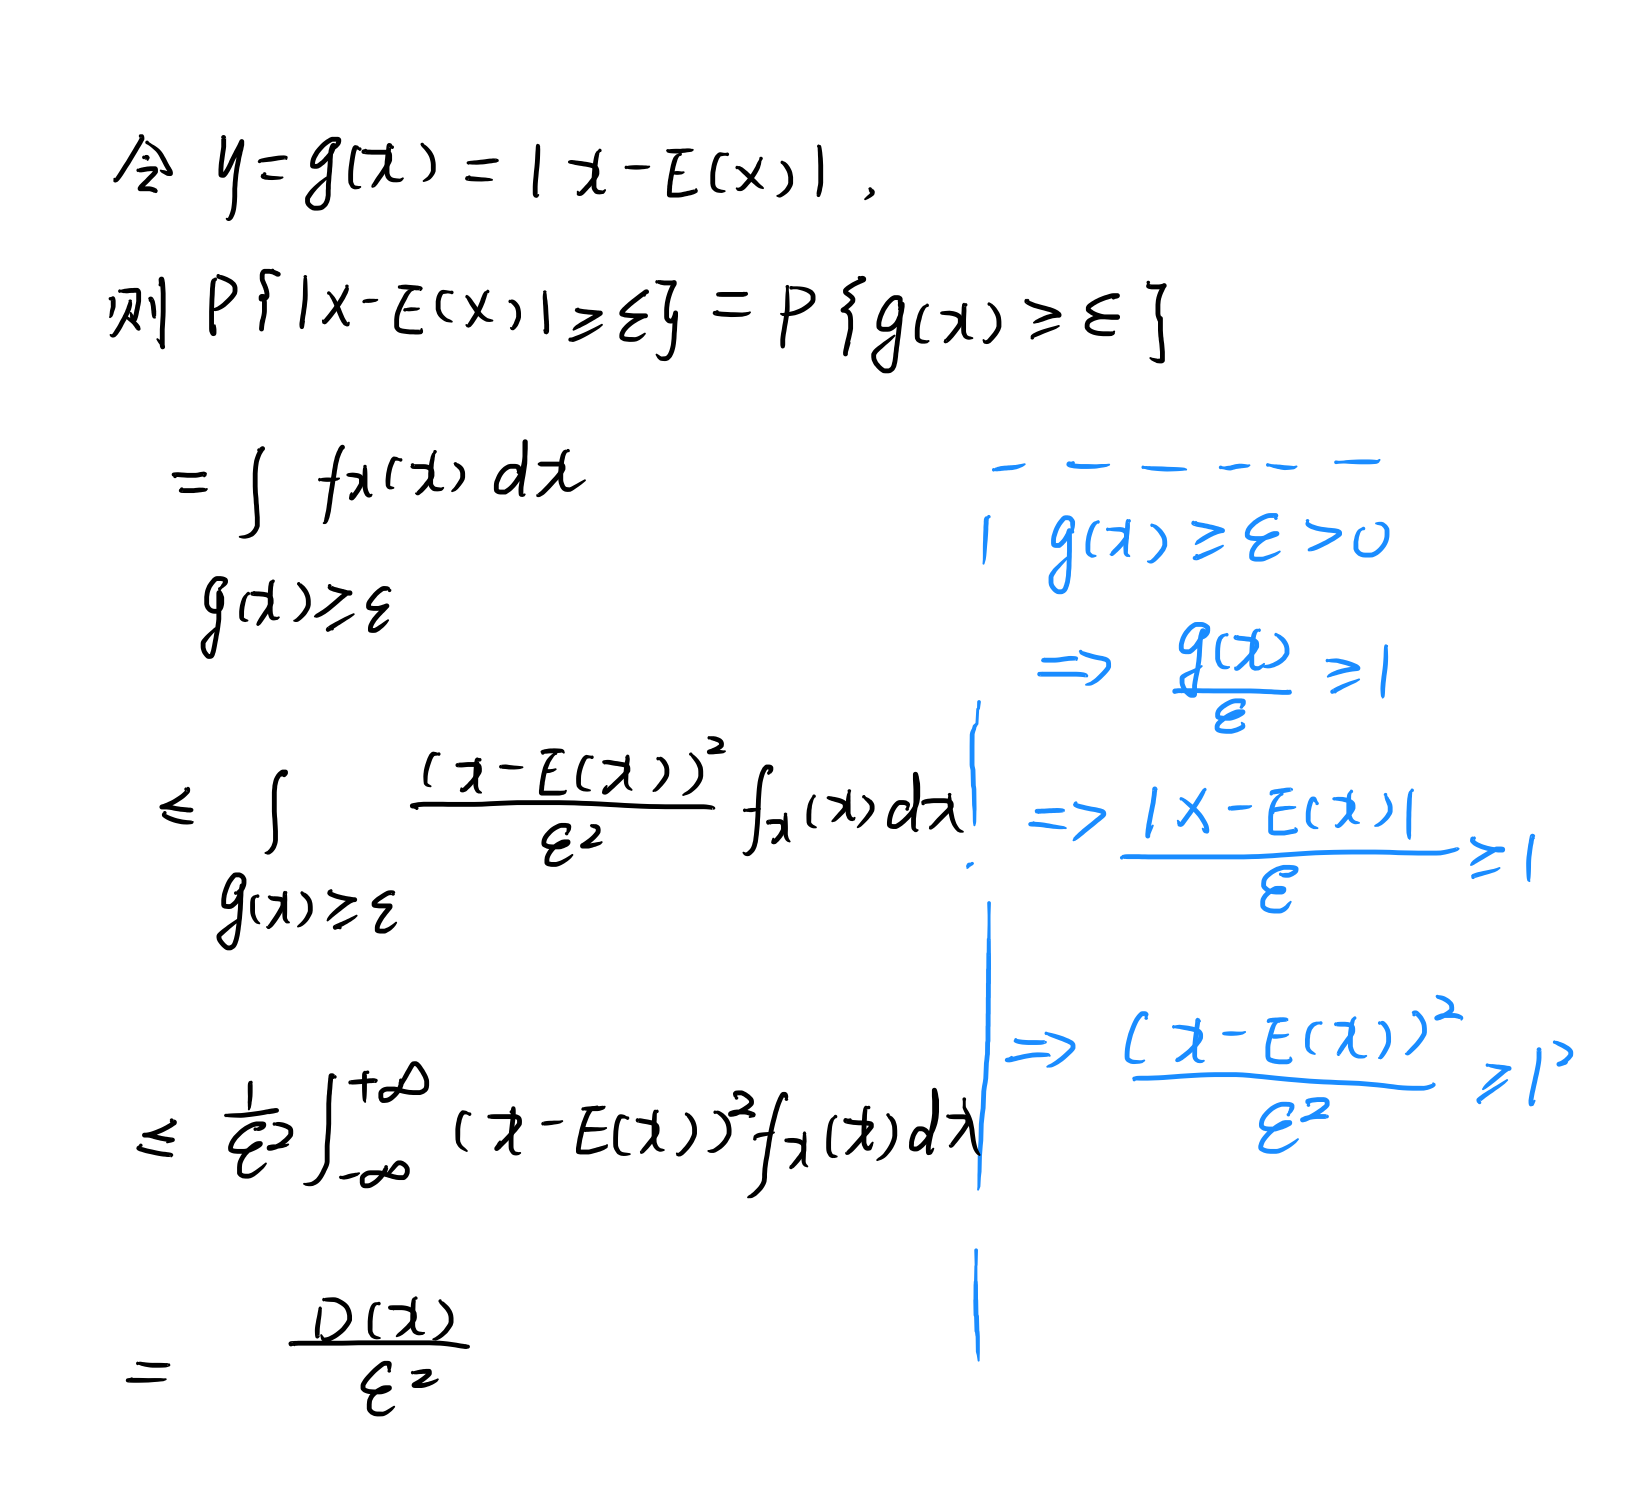 令 y=g(x)=|x-E(x)|,
则 P{|X-E(X)|≥ε}=P{g(x)≥ε}
=∫ fx(x)dx
g(x)≥ε
≤ ∫ (x-E(x))²/ε² fx(x)dx
g(x)≥ε
≤ 1/ε² ∫_{-∞}^{+∞} (x-E(x))² fx(x)dx
= D(x)/ε²
g(x)≥ε>0
=> g(x)/ε ≥1
=> |X-E(x)|/ε ≥1
=> (x-E(x))²/ε² ≥1²